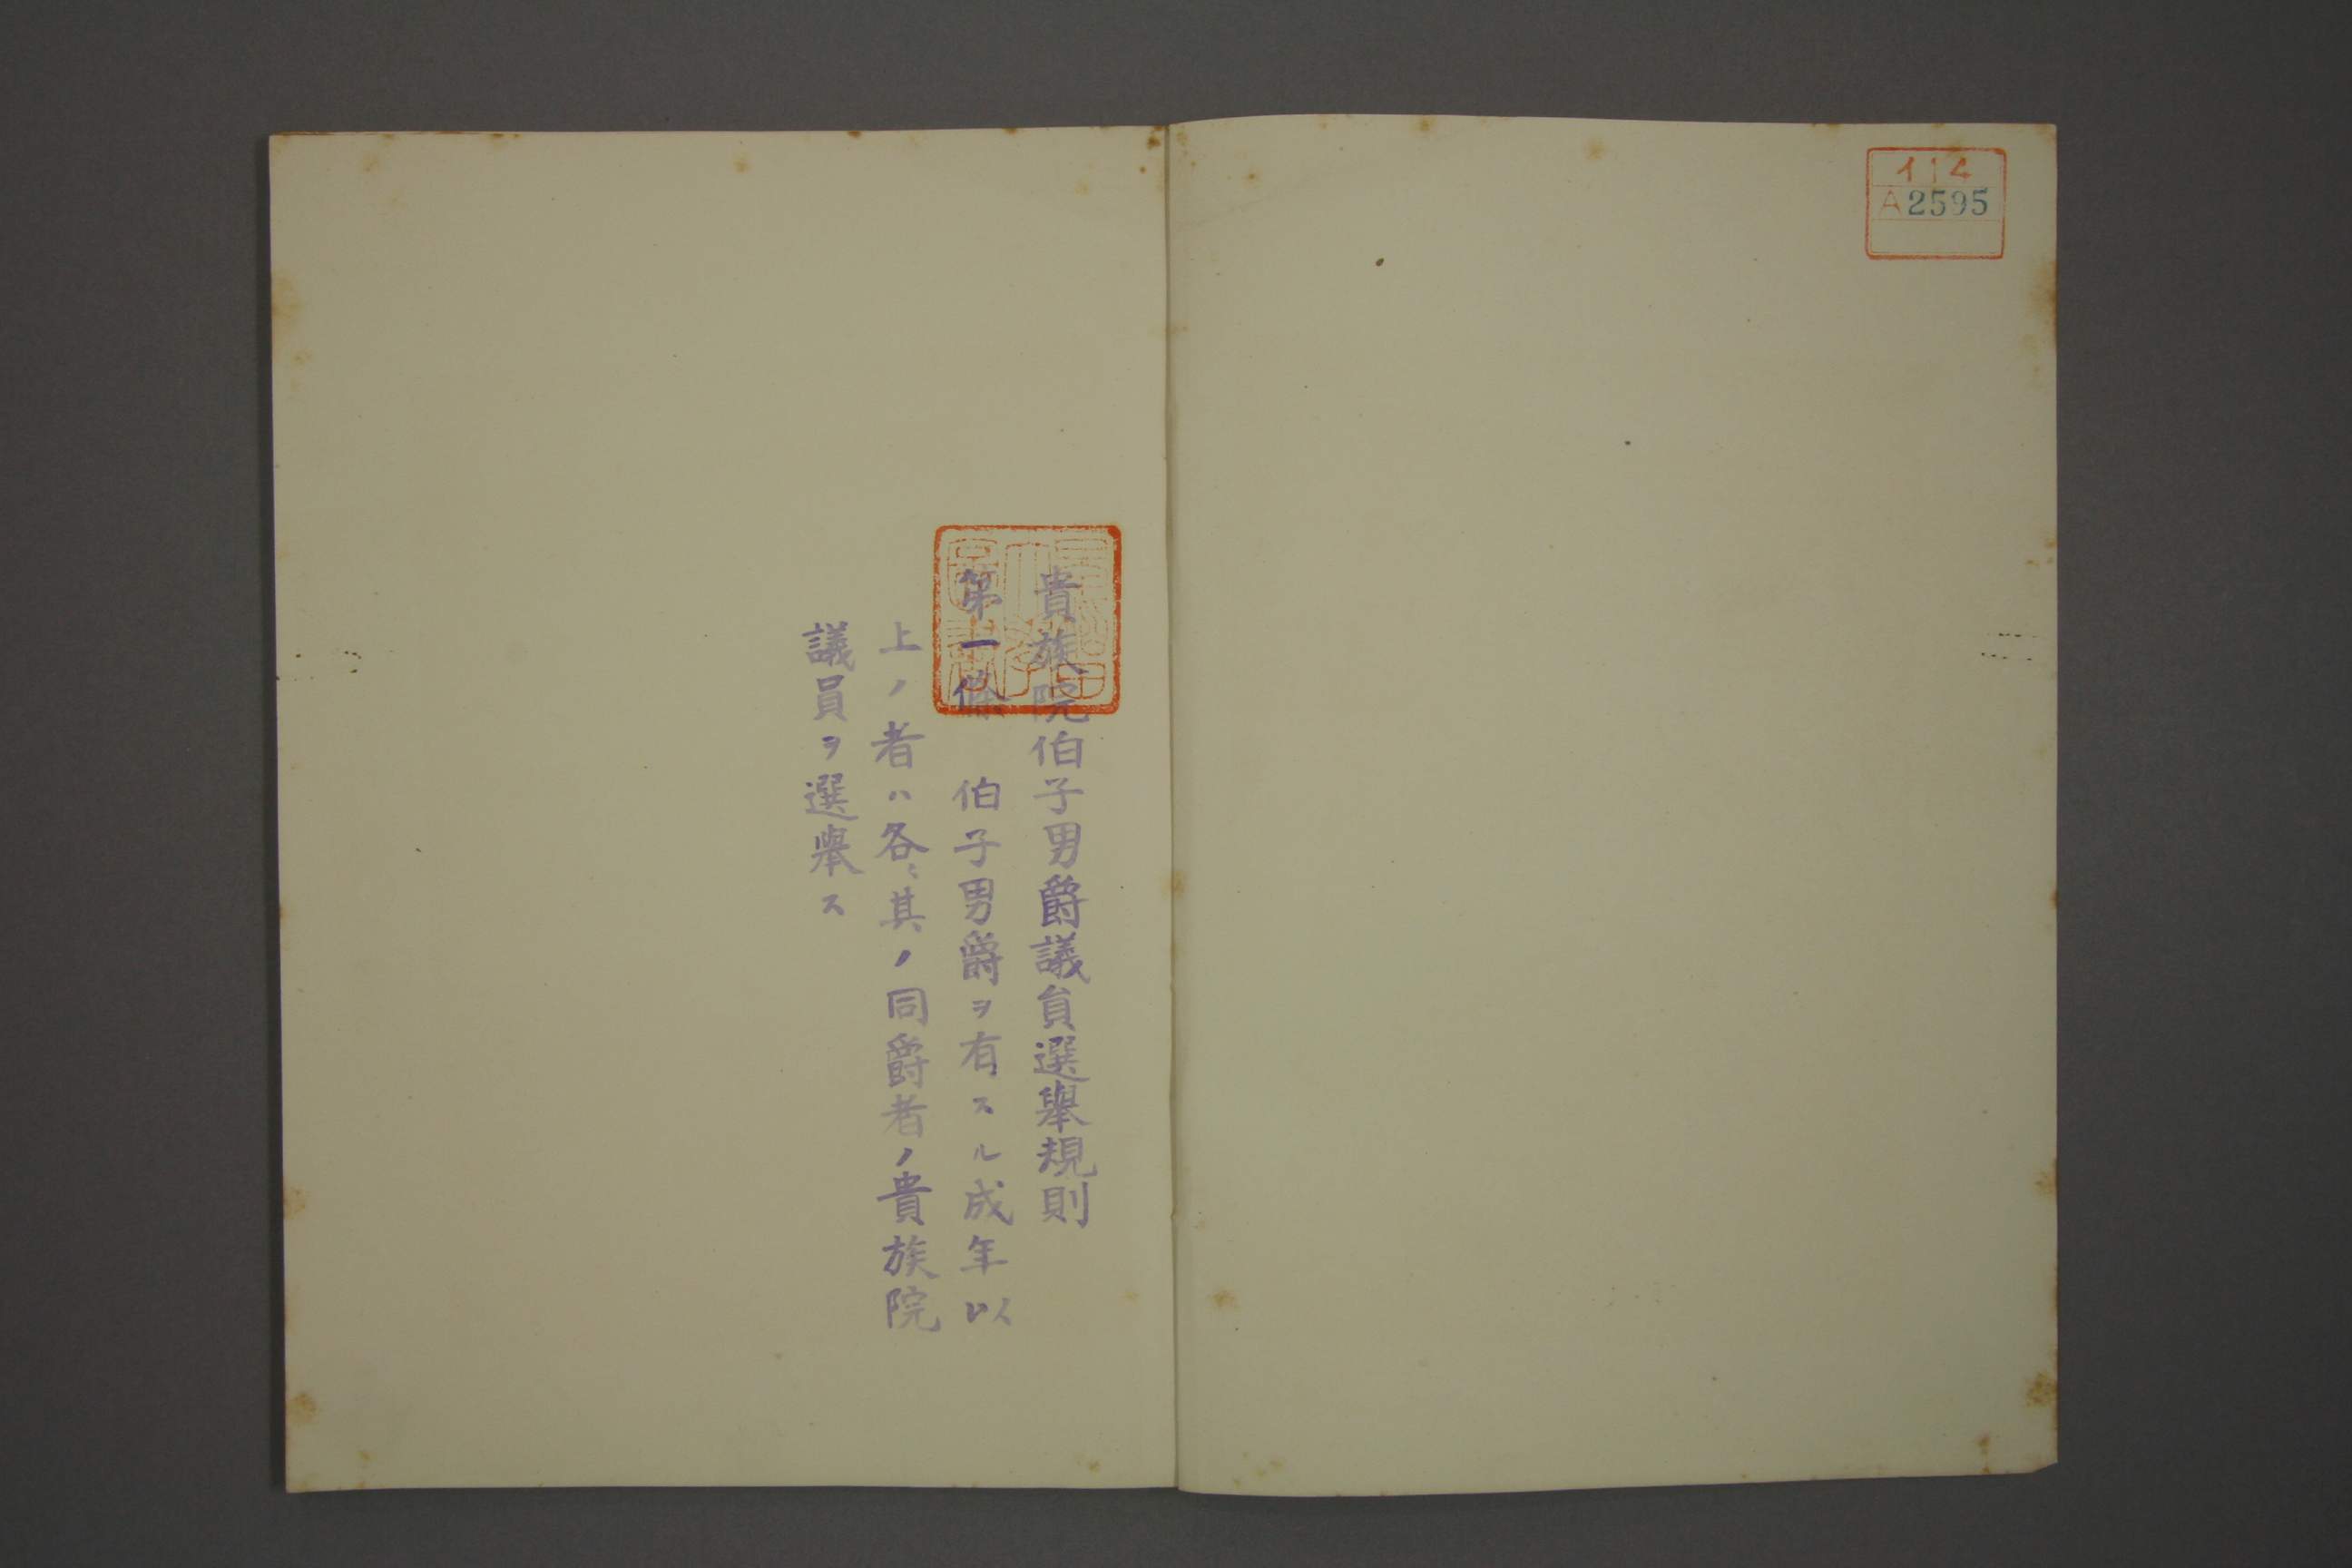 イ14
A2595
貴族院伯子男爵議員選擧規則
第一條　伯子男爵ヲ有スル成年以
上ノ者ハ各〻其ノ同爵者ノ貴族院
議員ヲ選擧ス